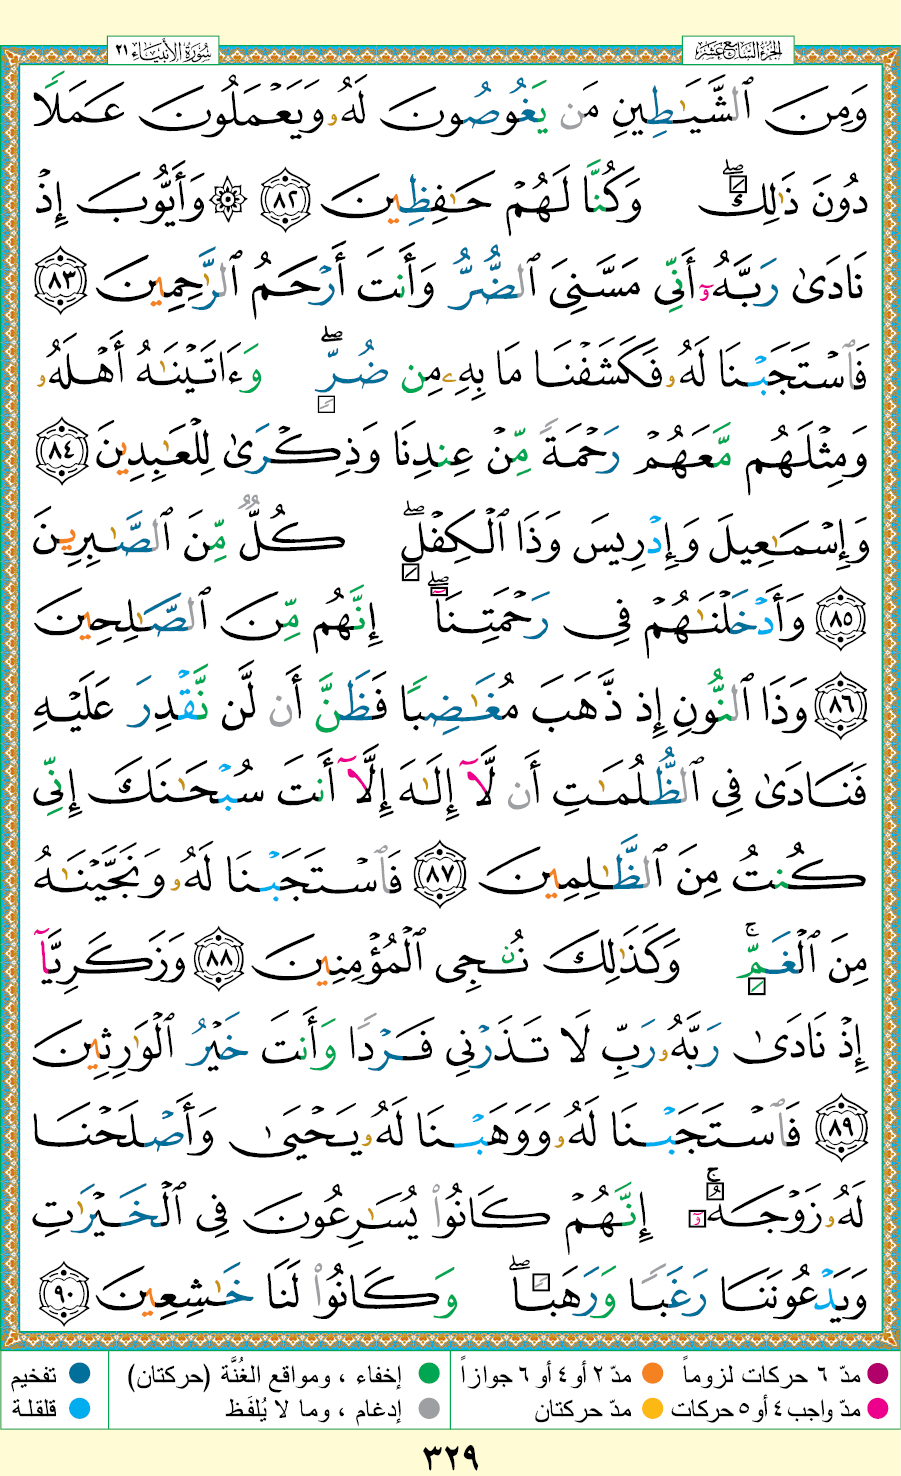 الجزء السابع عشر
سورة الأنبياء ٢١
وَمِنَ ٱلشَّيَٰطِينِ مَن يَغُوصُونَ لَهُۥ وَيَعْمَلُونَ عَمَلًا
دُونَ ذَٰلِكَۖ وَكُنَّا لَهُمْ حَٰفِظِينَ ٨٢ ۞ وَأَيُّوبَ إِذْ
نَادَىٰ رَبَّهُۥٓ أَنِّي مَسَّنِيَ ٱلضُّرُّ وَأَنتَ أَرْحَمُ ٱلرَّٰحِمِينَ ٨٣
فَٱسْتَجَبْنَا لَهُۥ فَكَشَفْنَا مَا بِهِۦ مِن ضُرٍّۖ وَءَاتَيْنَٰهُ أَهْلَهُۥ
وَمِثْلَهُم مَّعَهُمْ رَحْمَةً مِّنْ عِندِنَا وَذِكْرَىٰ لِلْعَٰبِدِينَ ٨٤
وَإِسْمَٰعِيلَ وَإِدْرِيسَ وَذَا ٱلْكِفْلِۖ كُلٌّ مِّنَ ٱلصَّٰبِرِينَ
٨٥ وَأَدْخَلْنَٰهُمْ فِي رَحْمَتِنَآۖ إِنَّهُم مِّنَ ٱلصَّٰلِحِينَ
٨٦ وَذَا ٱلنُّونِ إِذ ذَّهَبَ مُغَٰضِبًا فَظَنَّ أَن لَّن نَّقْدِرَ عَلَيْهِ
فَنَادَىٰ فِي ٱلظُّلُمَٰتِ أَن لَّآ إِلَٰهَ إِلَّآ أَنتَ سُبْحَٰنَكَ إِنِّي
كُنتُ مِنَ ٱلظَّٰلِمِينَ ٨٧ فَٱسْتَجَبْنَا لَهُۥ وَنَجَّيْنَٰهُ
مِنَ ٱلْغَمِّۚ وَكَذَٰلِكَ نُۨجِي ٱلْمُؤْمِنِينَ ٨٨ وَزَكَرِيَّآ
إِذْ نَادَىٰ رَبَّهُۥ رَبِّ لَا تَذَرْنِي فَرْدًا وَأَنتَ خَيْرُ ٱلْوَٰرِثِينَ
٨٩ فَٱسْتَجَبْنَا لَهُۥ وَوَهَبْنَا لَهُۥ يَحْيَىٰ وَأَصْلَحْنَا
لَهُۥ زَوْجَهُۥٓۚ إِنَّهُمْ كَانُوا۟ يُسَٰرِعُونَ فِي ٱلْخَيْرَٰتِ
وَيَدْعُونَنَا رَغَبًا وَرَهَبًاۖ وَكَانُوا۟ لَنَا خَٰشِعِينَ ٩٠
مدّ ٦ حركات لزوماً مدّ ٢ أو ٤ أو ٦ جوازاً إخفاء ، ومواقع الغُنَّة (حركتان) تفخيم
مدّ واجب ٤ أو ٥ حركات مدّ حركتان إدغام ، وما لا يُلفَظ قلقلة
٣٢٩